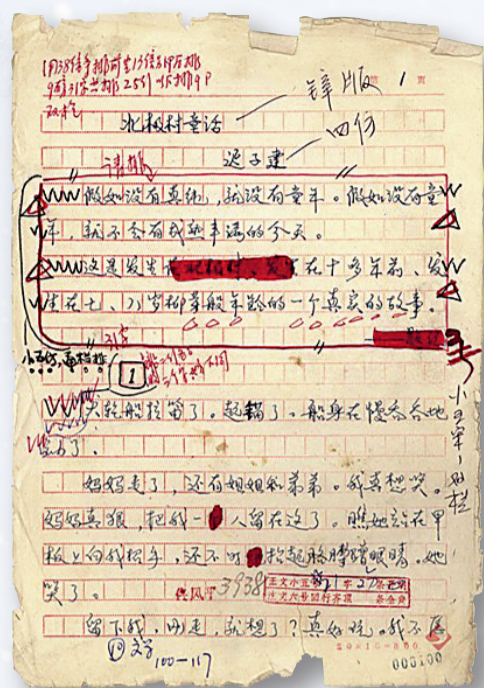 锌版
第 1 页
双栏
北极村童话
四仿
迟子建
请排
假如没有真纯，就没有童年。假如没有童
年，就不会有成熟丰满的今天。
这是发生在 发生在十多年前、发
生在七、八岁柳芽般年龄的一个真实的故事。
1
大轮船拉笛了。起锚了。船身在慢吞吞地
动了。
妈妈走了，还有姐姐和弟弟。我真想哭。
妈妈真狠，把我一 人留在这了。瞧她站在甲
板上向我招手，还不时 抬起胳膊擦眼睛。她
哭了。
3938
留下我，刚走，就想了？真好玩。我不愿
100—117
20×15=300
000100